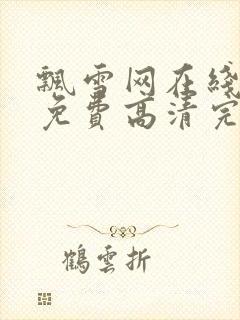 飄雪网在綫
免費高清完
鶴雲折